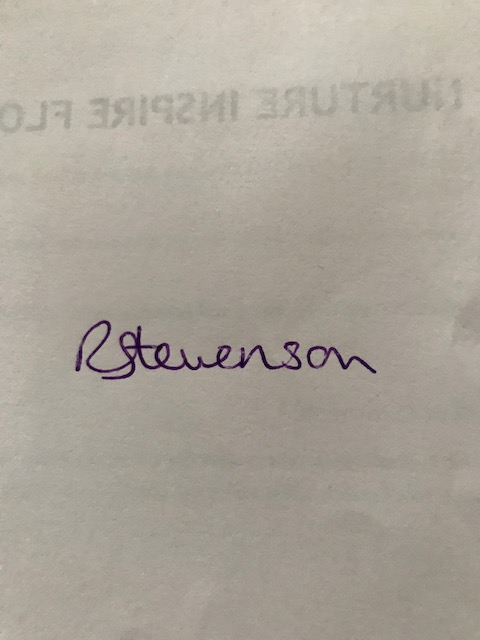 NURTURE INSPIRE FLO
RStevenson